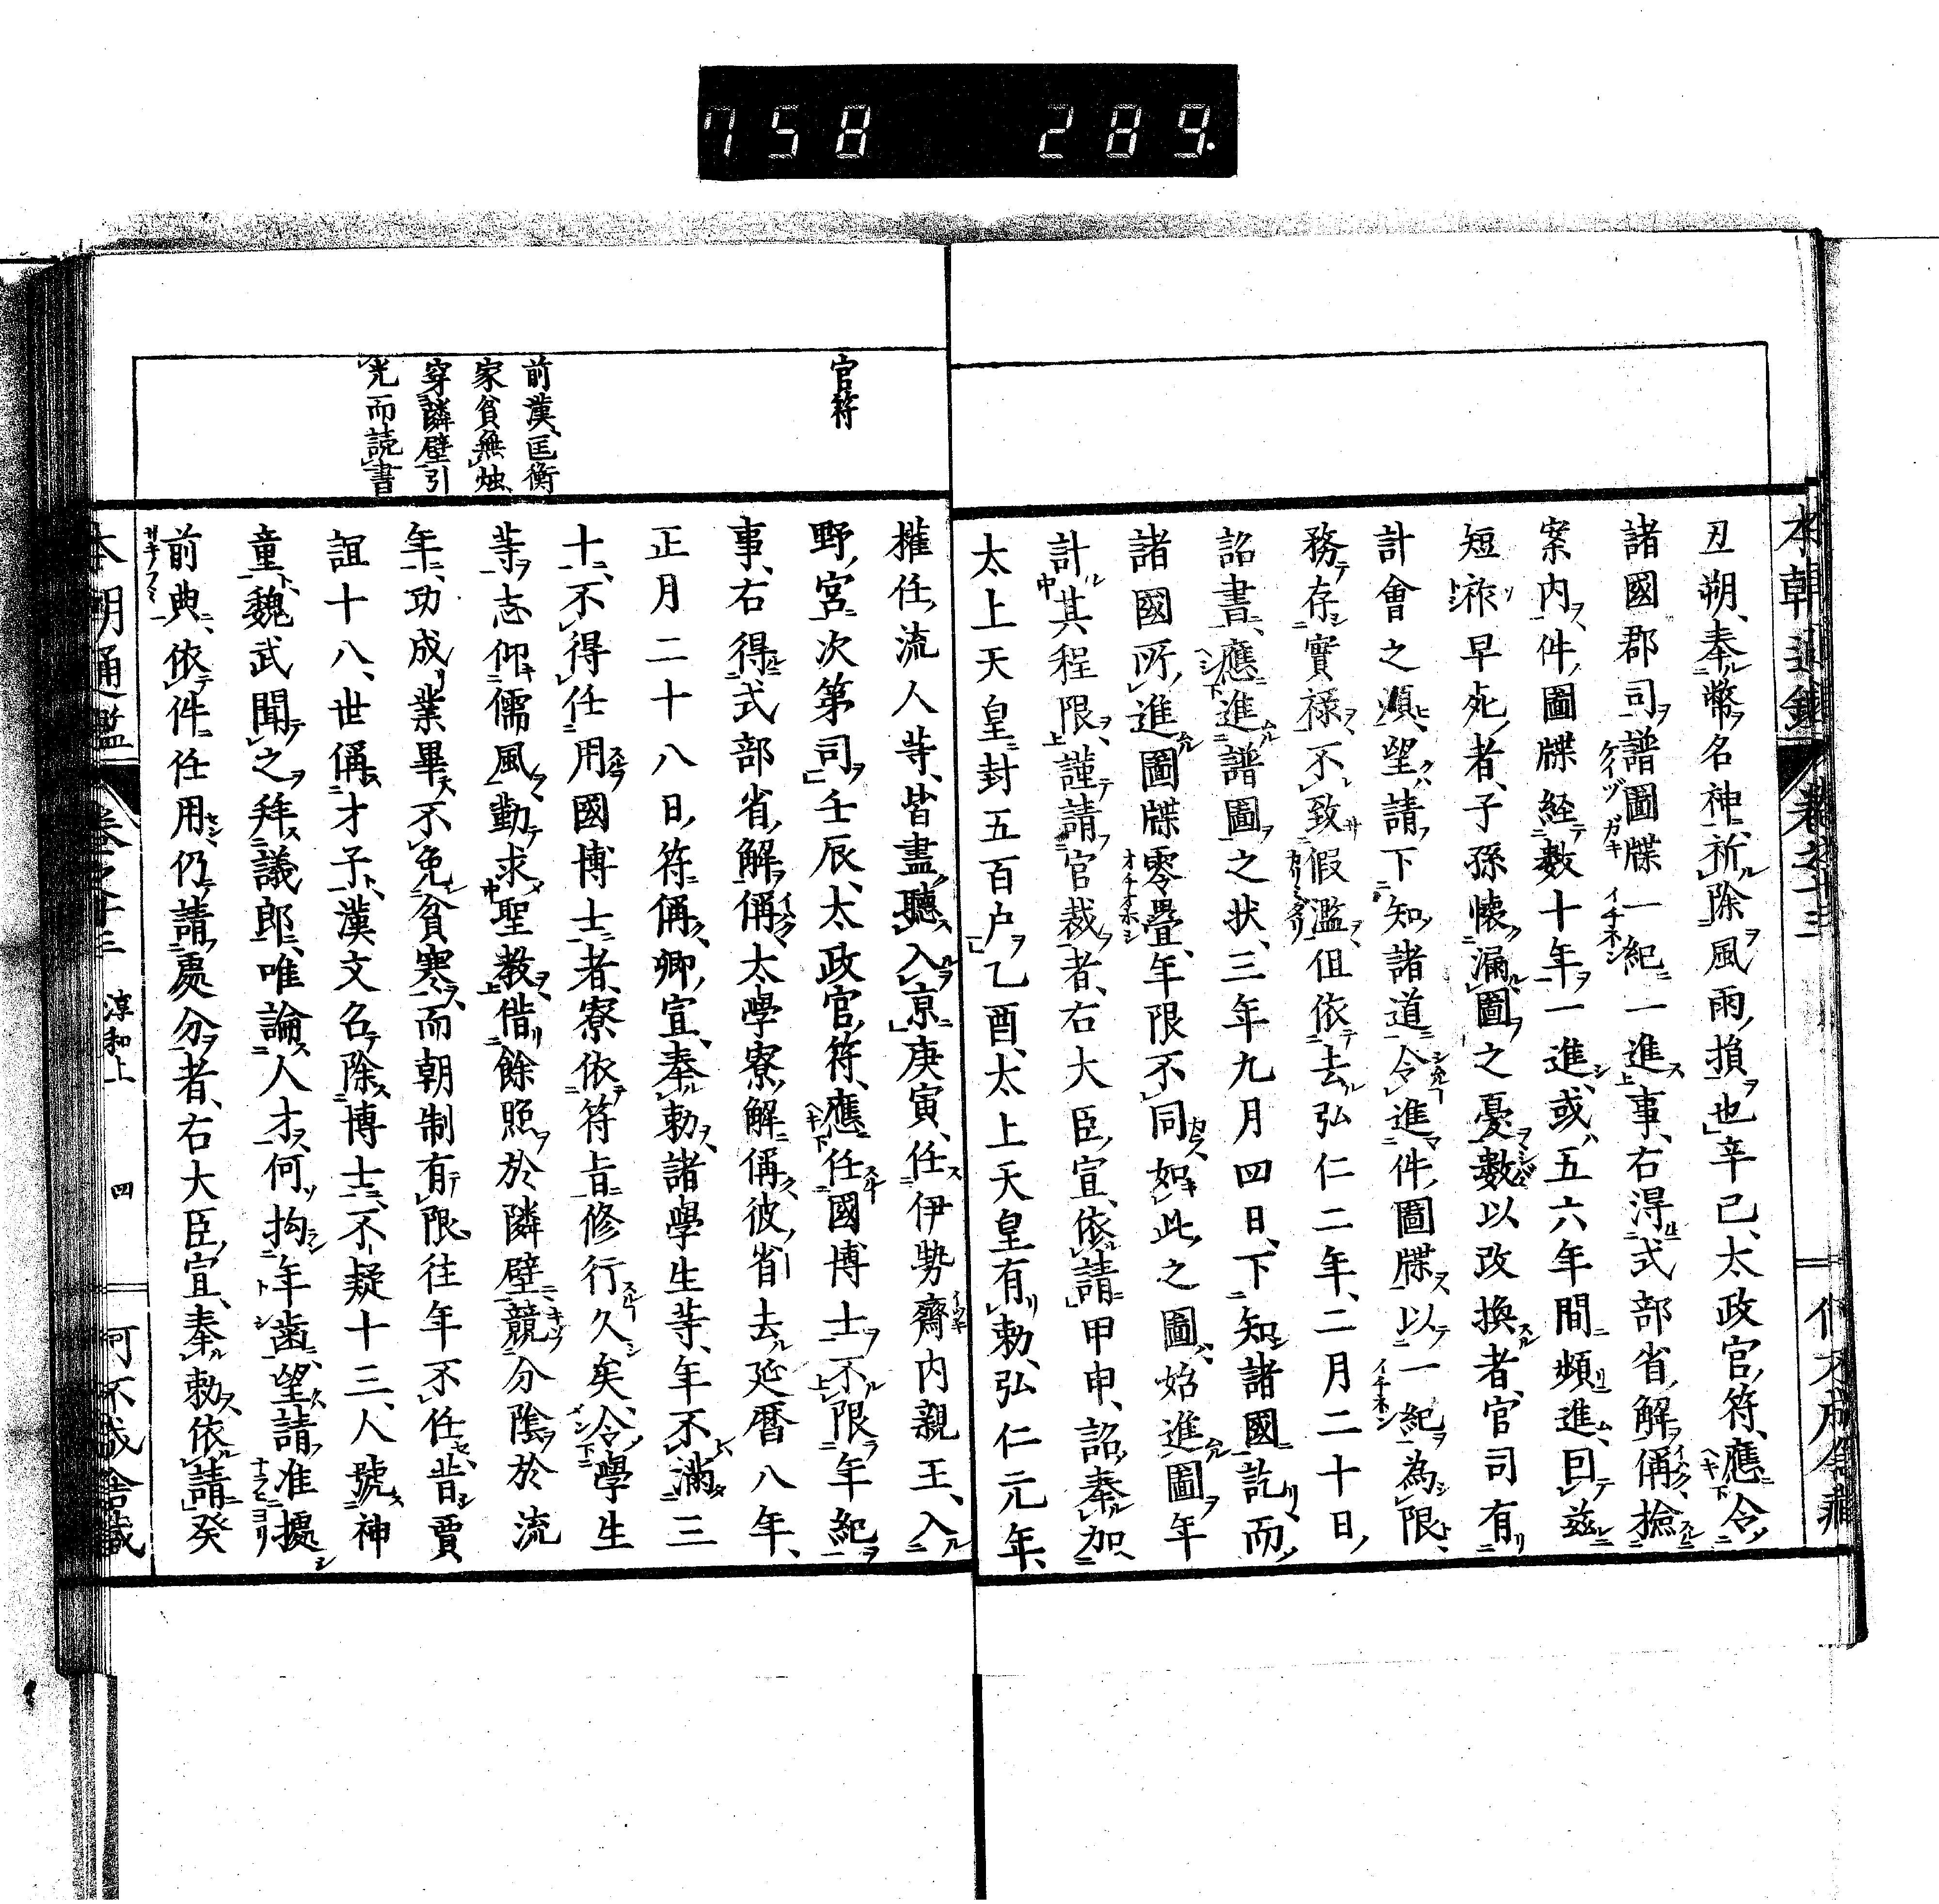 758 289.
本朝通鑑 卷之十三
丑朔、奉幣名神、祈除風雨損也辛己、太政官符、應令
諸國郡司譜圖牒一紀一進事、右得式部省解偁、撿
案内、件圖牒経数十年一進、或五六年間頻進、因茲
短祚早死者、子孫懐漏圖之憂、數以改換者、官司有
計會之煩、望請、下知諸道、令進件圖牒、以一紀為限、
務存實禄、不致假濫、但依去弘仁二年、二月二十日、
詔書、應進譜圖之状、三年九月四日、下知諸國訖、而
諸國所進圖牒零疊、年限不同、如此之圖、始進圖年
計其程限、謹請官裁者、右大臣宣、依請甲申、詔奉加
太上天皇封五百户乙酉、太上天皇有勅、弘仁元年、
官符
前漢匡衡
家貧無燭、
穿隣壁引
光而読書
權任流人等、皆盡聽入京庚寅、任伊勢齋内親王、入
野宮次第司壬辰、太政官符、應任國博士不限年紀
事、右得式部省解偁、太學寮解偁、彼省去延暦八年、
正月二十八日符偁、卿宣、奉勅、諸學生等、年不満三
十、不得任用國博士者、寮依符旨修行久矣、令學生
等志仰儒風、勤求聖教、借餘照於隣壁、競分陰於流
年、功成業畢、不免貧寒、而朝制有限、往年不任、昔賈
誼十八、世偁才子、漢文名除博士、不疑十三、人號神
童、魏武聞之、拜議郎、唯論人才、何拘年歯、望請、准據
前典、依件任用、仍請處分者、右大臣宣、奉勅、依請癸
本朝通鑑 卷之十三 淳和上 四